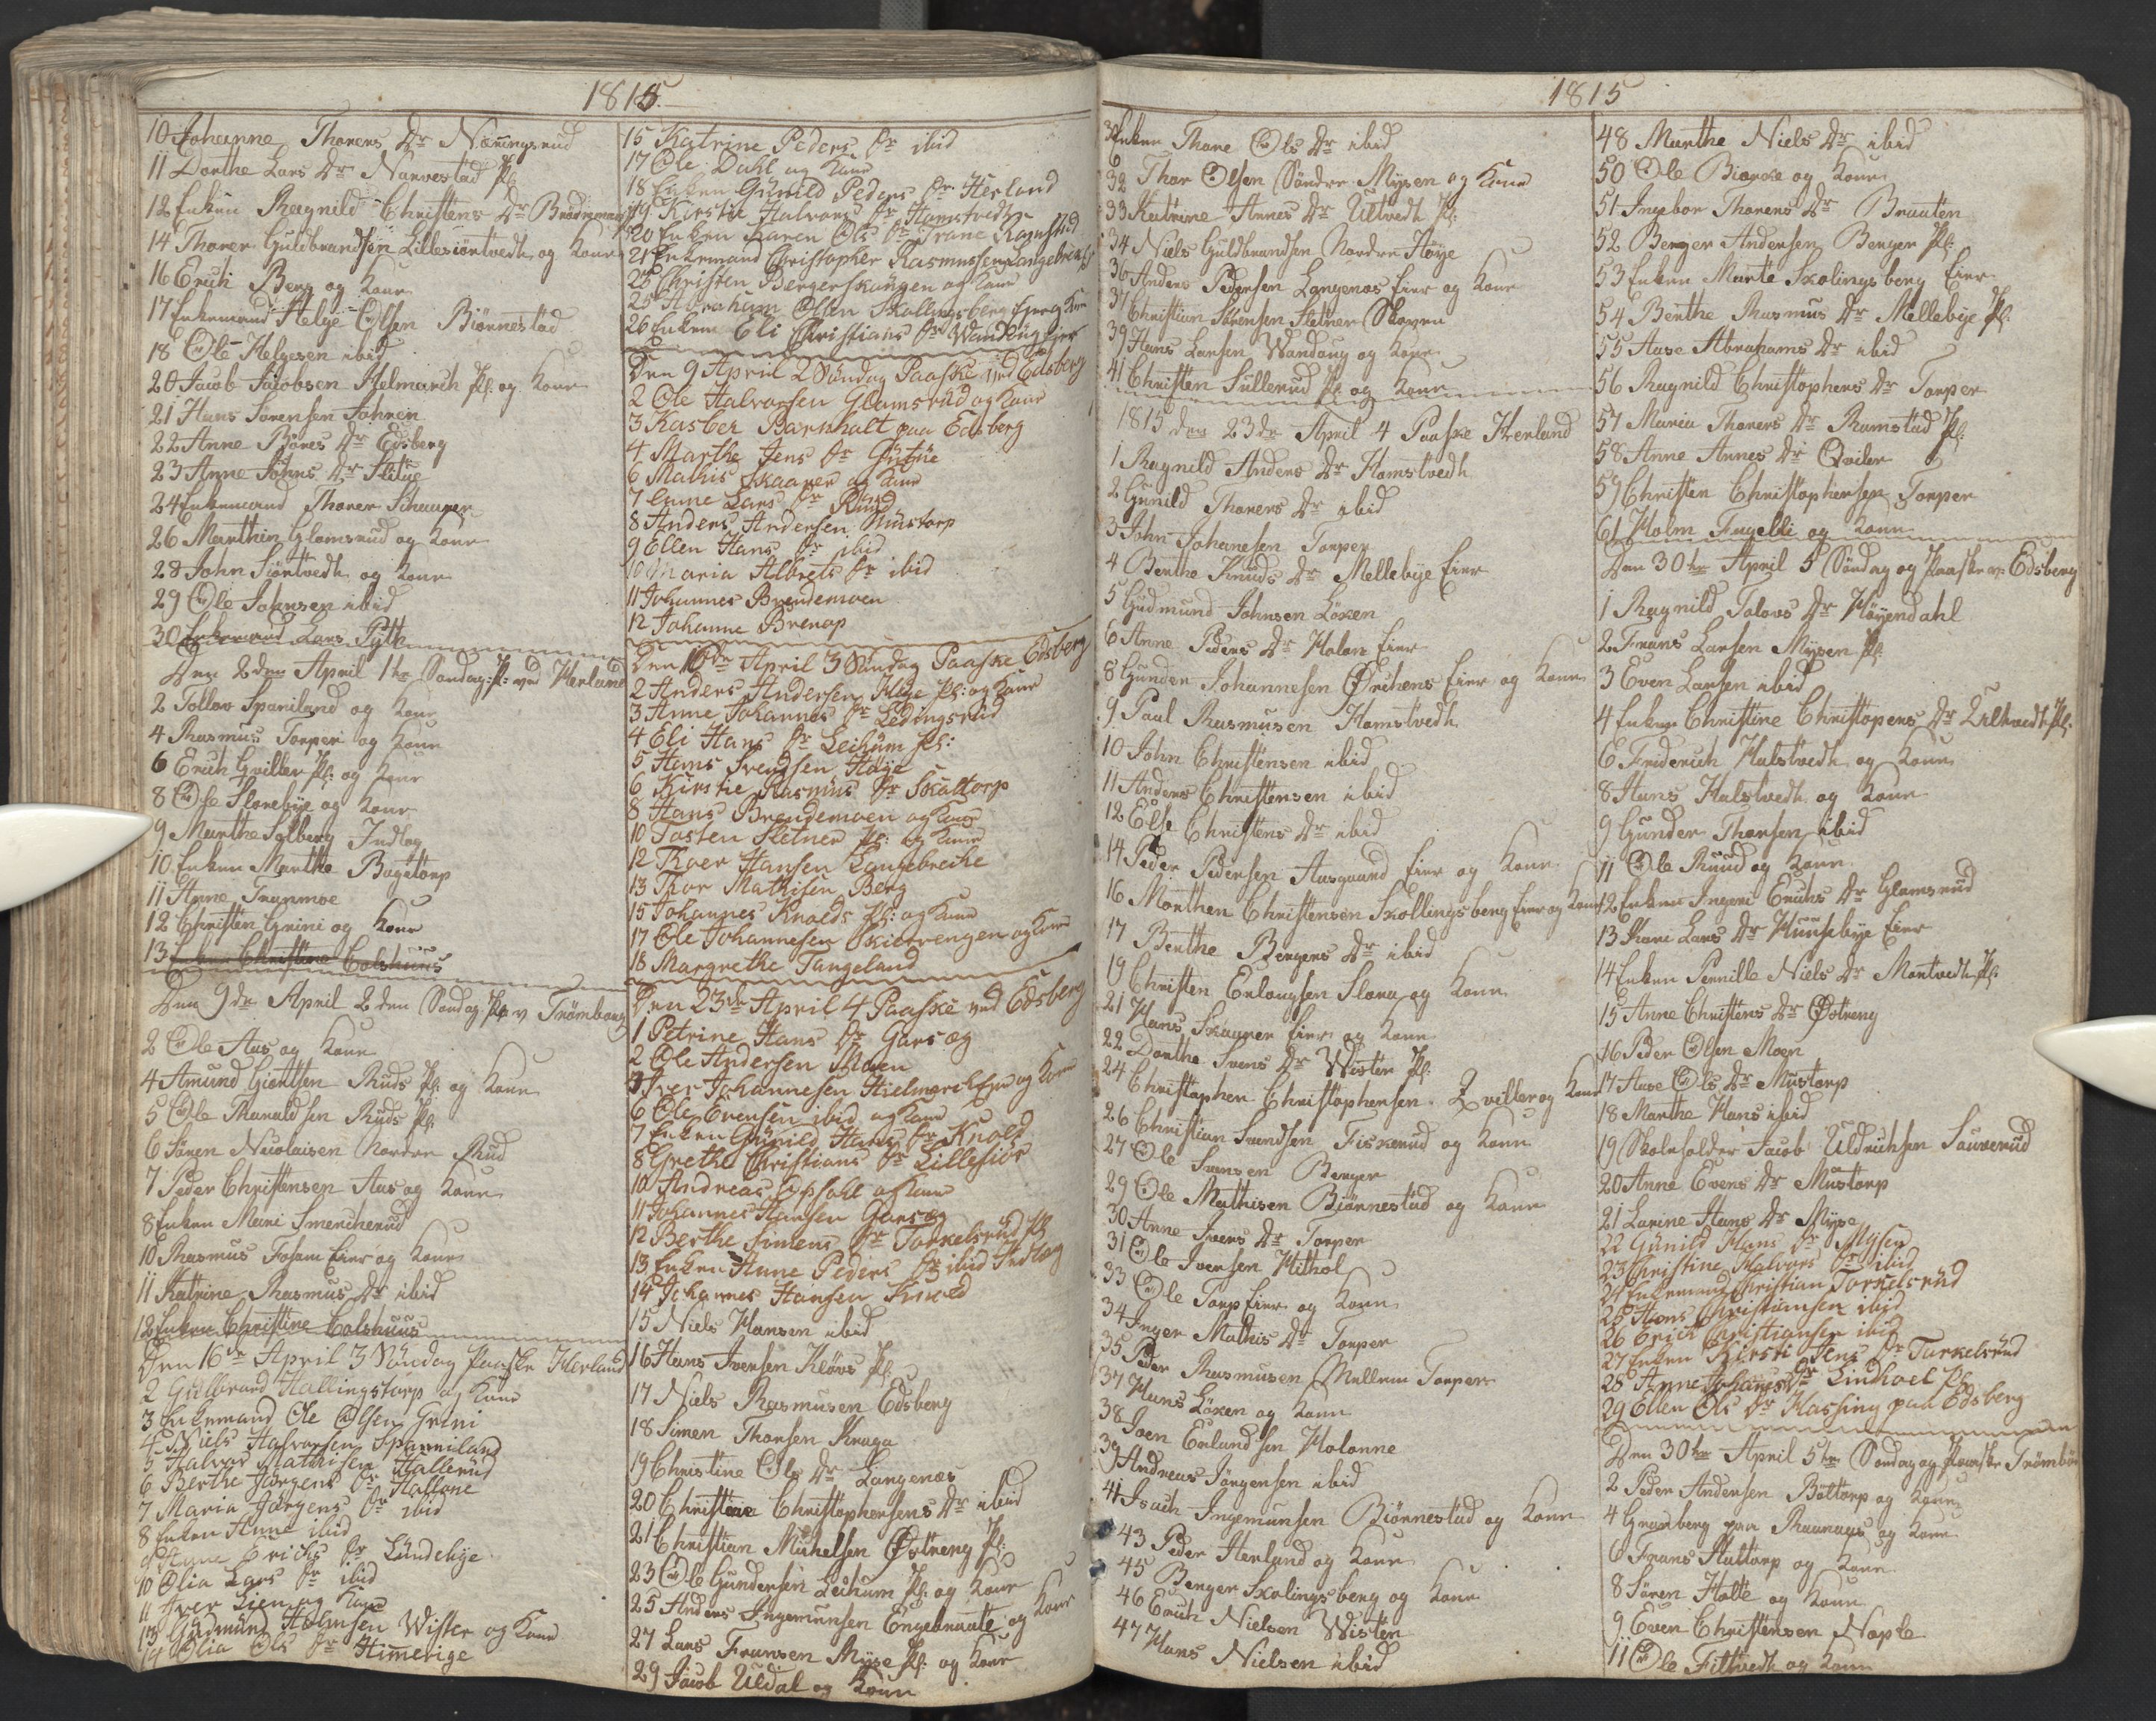 1815
10 Johanne Thorers Dr Næningsrud
11 Dorthe Lars Dr Narvestad Pl:
12 Enken Ragnild Christens Dr
14 Thorer Guldbrandsen Lillesiöntvedt og Kone
16 Erich Berg og Kone
17 Enkemand Helge Olsen Biönnestad
18 Ole Helgesen ibid
20 Jacob Jacobsen Helmarch Pl: og Kone
21 Hans Sörensen
22 Anne Bores Dr Edsberg
23 Anne Johns Dr
24 Enkemand Thorer Schaurer
26 Marthin Glomsrud og Kone
28 John Siöntvedt og Kone
29 Ole Johnsen ibid
30 Enkemand Lars
Den 2den April 1te Søndag P: ved Herland
2 Tollov Spaniland og Kone
4 Rasmus Torper og Kone
6 Erich Gviller Pl: og Kone
8 Ole Slorebye og Kone
9 Marthe Solberg Indlog
10 Enken Marthe Bøgetorp
11 Anne Tranmoe
12 Christen Grini og Kone
13 Enken Christine Colshuus
Den 9de April 2den Søndag P v Trömborg
2 Ole Aas og Kone
4 Amund Ruds Pl: og Kone
5 Ole Ruds Pl:
6 Sören Nicolaisen Nordre Rud
7 Peder Christensen Aas og Kone
8 Enken Mari
10 Rasmus Fosum Eier og Kone
11 Katrine Rasmus Dr ibid
12 Enken Christine Colshuus
Den 16de April 3 Søndag Paaske Herland
2 Gulbrand Hallingstorp og Kone
3 Enkemand Ole Olsen Grini
4 Niels Halvorsen Spanniland
5 Halvor Mathisen Hallerud
6 Berthe Jörgens Dr
7 Maria Jörgens Dr ibid
8 Enken Anne ibid
9 Anne Erichs Dr Lundebye
10 Olia Lars Dr ibid
11 Iver Lien og Kone
13 Gudmund Holmsen Wister og Kone
14 Olia Ols Dr Himerige
15 Katrine Peders Dr ibid
17 Ole Dahl og Kone
18 Enken Gunild Peders Dr Herland
19 Kirstie Halvors Dr Hamstvedt
20 Enken Karen Ols Dr Trane Ramstad
21 Enkemand Christopher Rasmussen Langebreche
23 Christen Bergerskangen og Kone
25 Abraham Olsen Skallingsberg Eier og Kone
26 Enken Eli Christians Dr Wandaug Eier
Den 9 April 2 Søndag Paaske ved Edsberg
2 Ole Halvorsen Glamsrud og Kone
3 Kasber Barnholt paa Edsberg
4 Marthe Jens Dr
6 Mathis Skaarer og Kone
7 Anne Lars Dr Ruud
8 Anders Andersen Mustorp
9 Ellen Hans Dr ibid
10 Maria Albrets Dr ibid
11 Johannes Brendemoen
12 Johanne
Den 16de April 3 Søndag Paaske Edsberg
2 Anders Andersen Høye Pl: og Kone
3 Anne Johannes Dr Ledingsrud
4 Eli Hans Dr Leikum Pl:
5 Hans Svendsen Høye
6 Kirstie Rasmus Dr Skaltorp
8 Hans Brendemoen og Kone
10 Tosten Sletner Pl: og Kone
12 Thoer Hansen Langebreche
13 Thor Mathisen Berg
15 Johannes Knolds Pl: og Kone
17 Ole Johannesen Skierrengen og Kone
18 Margrethe Tangeland
Den 23de April 4 Paaske ved Edsberg
1 Petrine Hans Dr Garsæg
2 Ole Andersen Moen
4 Iver Johannesen Hielmarck Eier og Kone
6 Ole Evensen ibid og Kone
7 Enken Gunild Hans Dr Knold
8 Grethe Christians Dr Lillesiör
10 Andreas Opsahl og Kone
11 Johannes Hansen Garsæg
12 Berthe Simens Dr Torkelsrud Pl
13 Enken Anne Peders Dr ibid Indlog
14 Johannes Hansen Knold
15 Niels Hansen ibid
16 Hans Iversen Kløvs Pl:
17 Niels Rasmusen Edsberg
18 Simen Thorsen Kraga
19 Christine Ols Dr Langenæs
20 Christine Christophersens Dr ibid
21 Christian Michelsen Østreng Pl:
23 Ole Gundersen Leikum Pl: og Kone
25 Anders Ingemunsen Engebraate og Kone
27 Lars Fransen Myse Pl: og Kone
29 Jacob Uldal og Kone
1815
Enken Thore Ols Dr ibid
32 Thor Olsen Söndre Mysen og Kone
33 Katrine Annes Dr Ultvedt Pl:
34 Niels Guldbrandsen Nordre Høye
36 Anders Pedersen Langenæs Eier og Kone
37 Christian Sörensen Sletner Skoven
39 Hans Larsen Wandaug og Kone
41 Christen Sullerud Pl og Kone
1815 den 23de April 4 Paaske Herland
1 Ragnild Anders Dr Hamstvedt
2 Gunild Thorers Dr ibid
3 John Johanesen Torper
4 Benthe Knuds Dr Mellebye Eier
5 Gudmund Johnsen Löken
6 Anne Peders Dr Holøn Eier
8 Gunder Johannesen Ørichens Eier og Kone
9 Paul Rasmusen Hamstvedt
10 John Christensen ibid
11 Anders Christensen ibid
12 Else Christens Dr ibid
14 Peder Pedersen Aasgaard Eier og Kone
16 Morthen Christensen Skollingsberg Eier og Kone
17 Benthe Bergers Dr ibid
19 Christen Erlangsen Slora og Kone
21 Hans Skaarer Eier og Kone
22 Dorthe Svens Dr Wister Pl:
24 Christopher Christophersen Qviller og Kone
26 Christian Svendsen Fiskerud og Kone
27 Ole Svensen Berger
29 Ole Mathisen Biörnestad og Kone
30 Anne Ivers Dr Torper
31 Ole Iversen Hithol
33 Ole Torp Eier og Kone
34 Inger Mathis Dr Torper
35 Peder Rasmusen Mellem Torper
37 Hans Löken og Kone
38 Joen Erlandsen Holonne
39 Andreas Jörgensen ibid
41 Isach Ingemunsen Biörnestad og Kone
43 Peder Herland og Kone
45 Berger Skolingsberg og Kone
46 Erich Nielsen Wister
47 Hans Nielsen ibid
48 Marthe Niels Dr ibid
50 Ole Biørke og Kone
51 Ingebor Thorers Dr Braaten
52 Berger Andersen Berger Pl:
53 Enken Marte Skolingsberg Eier
54 Benthe Rasmus Dr Mellebye Pl:
55 Aase Abrahams Dr ibid
56 Ragnild Christophers Dr Torper
57 Maria Thorers Dr Ramstad Pl:
58 Anne Annes Dr Qviler
59 Christen Christophersen Torper
61 Holm Fugelli og Kone
Den 30te April 5 Søndag og Paaske v: Edsberg
1 Ragnild Tolovs Dr Høyendahl
2 Frans Larsen Mysen Pl:
3 Even Larsen ibid
4 Enken Christine Christopers Dr Pl:
6 Friderich Halstvedt og Kone
8 Hans Halstvedt og Kone
9 Gunder Thorsen ibid
11 Ole Ruud og Kone
12 Enken Ingeri Erichs Dr Glomsrud
13 Kari Lars Dr Huusebye Eier
14 Enken Pernille Niels Dr Mortvedt Pl:
15 Anne Christens Dr Østreng
16 Peder Olsen Moen
17 Aase Ols Dr Mustorp
18 Marthe Hans ibid
19 Skoleholder Jacob Uldrichsen Sauverud
20 Anne Evens Dr Mustorp
21 Larine Hans Dr Myse
22 Gunild Hans Dr Mysen
23 Christine Halvors Dr ibid
24 Enkemand Christian Torkelsrud
25 Hans Christiansen ibid
26 Erich Christiansen ibid
27 Enken Kirsti Jens Dr Turkelsrud
28 Anne Johanes Dr Lindhoel Pl:
29 Ellen Ols Dr Hassing paa Edsberg
Den 30te April 5te Søndag og Paaske
2 Peder Andersen Böttorp og Kone
4 Granberg paa Raanaas og Kone
6 Frans Huttorp og Kone
8 Sören Holte og Kone
9 Even Christensen Næple
11 Ole Filtvedt og Kone